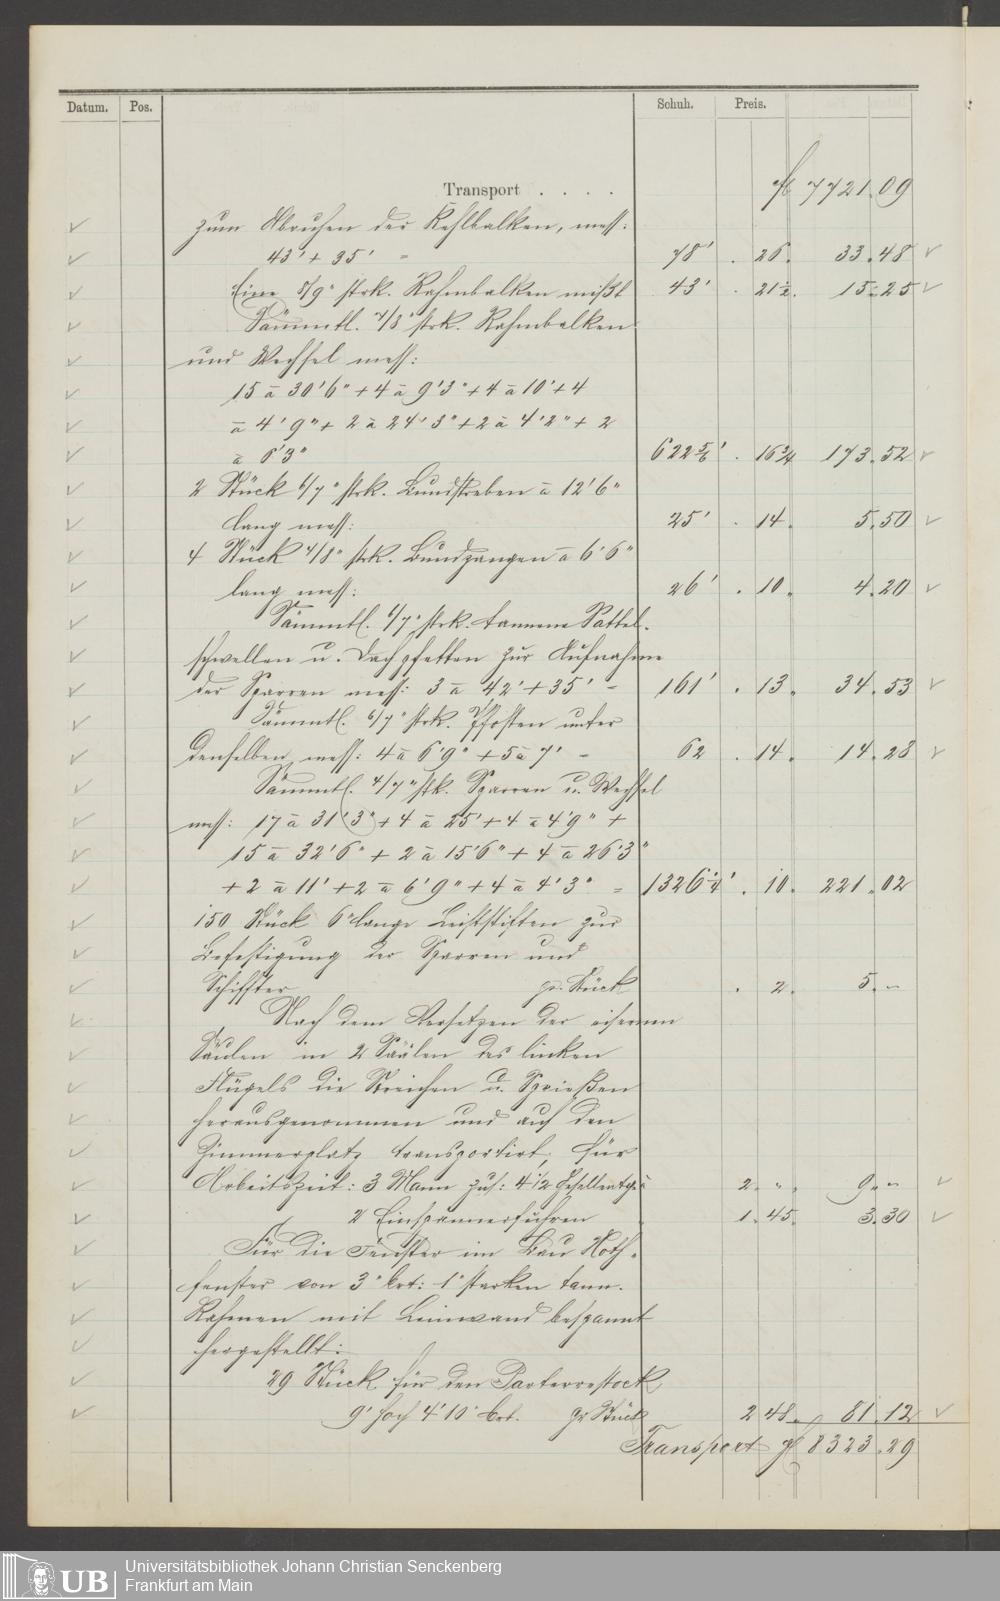 Datum. Pos. Schuh. Preis.
Transport . . . . fl 7721.09
zum Abruhen der Kehlbalken, mess:
43' + 35' = 78' . 26. 33.48
Eine 8/9" strk. Rahmbalken mißt 43' . 21½. 15.25
Sämmtl. 7/8" strk. Rahmbalken
und Wechsel mess:
15 à 30'6" + 4 à 9'3" + 4 à 10' + 4
à 4'9" + 2 à 24'3" + 2 à 4'2" + 2
à 6'3" 622 5/6' . 16¾ 173.52
2 Stück 6/7" strk. Bundstreben à 12'6"
lang mess: 25' . 14. 5.50
4 Stück 4/8" strk. Bundzangen à 6'6"
lang mess: 26' . 10. 4.20
Sämmtl. 6/7" strk. tannene Sattel-
schwellen u. Dachpfetten zur Aufnahme
der Sparren mess: 3 à 42' + 35' = 161' . 13. 34.53
Sämmtl. 6/7" strk. Pfosten unter
denselben, mess: 4 à 6'9" + 5 à 7' = 62 . 14. 14.28
Sämmtl. 4/7" strk. Sparren u. Wechsel
mess: 17 à 31'3" + 4 à 25' + 4 à 4'9" +
15 à 32'6" + 2 à 15'6" + 4 à 26'3"
+ 2 à 11' + 2 à 6'9" + 4 à 4'3" = 1326¼' . 10. 221.02
150 Stück 6" lange Leiststiften zur
Befestigung der Sparren und
Schiffter pr. Stück . 2. 5.–
Nach dem Versetzen der eisernen
Säulen in 2 Säälen des linken
Flügels die Streichen u. Sprießen
herausgenommen und auf den
Zimmerplatz transportirt, für
Arbeitszeit: 3 Mann zus: 4½ Gesellentge à 2. " " 9."–
2 Einspännerfuhren 1.45. 3.30
Für die Fenster im Bau Noth-
fenster von 3" brt: 1" starken tann.
Rahmen mit Leinwand bespannt
hergestellt:
29 Stück für den Parterrestock
9' hoch 4'10" brt. pr Stück 2 48. 81.12
Transport fl 8323.29
UB Universitätsbibliothek Johann Christian Senckenberg
Frankfurt am Main